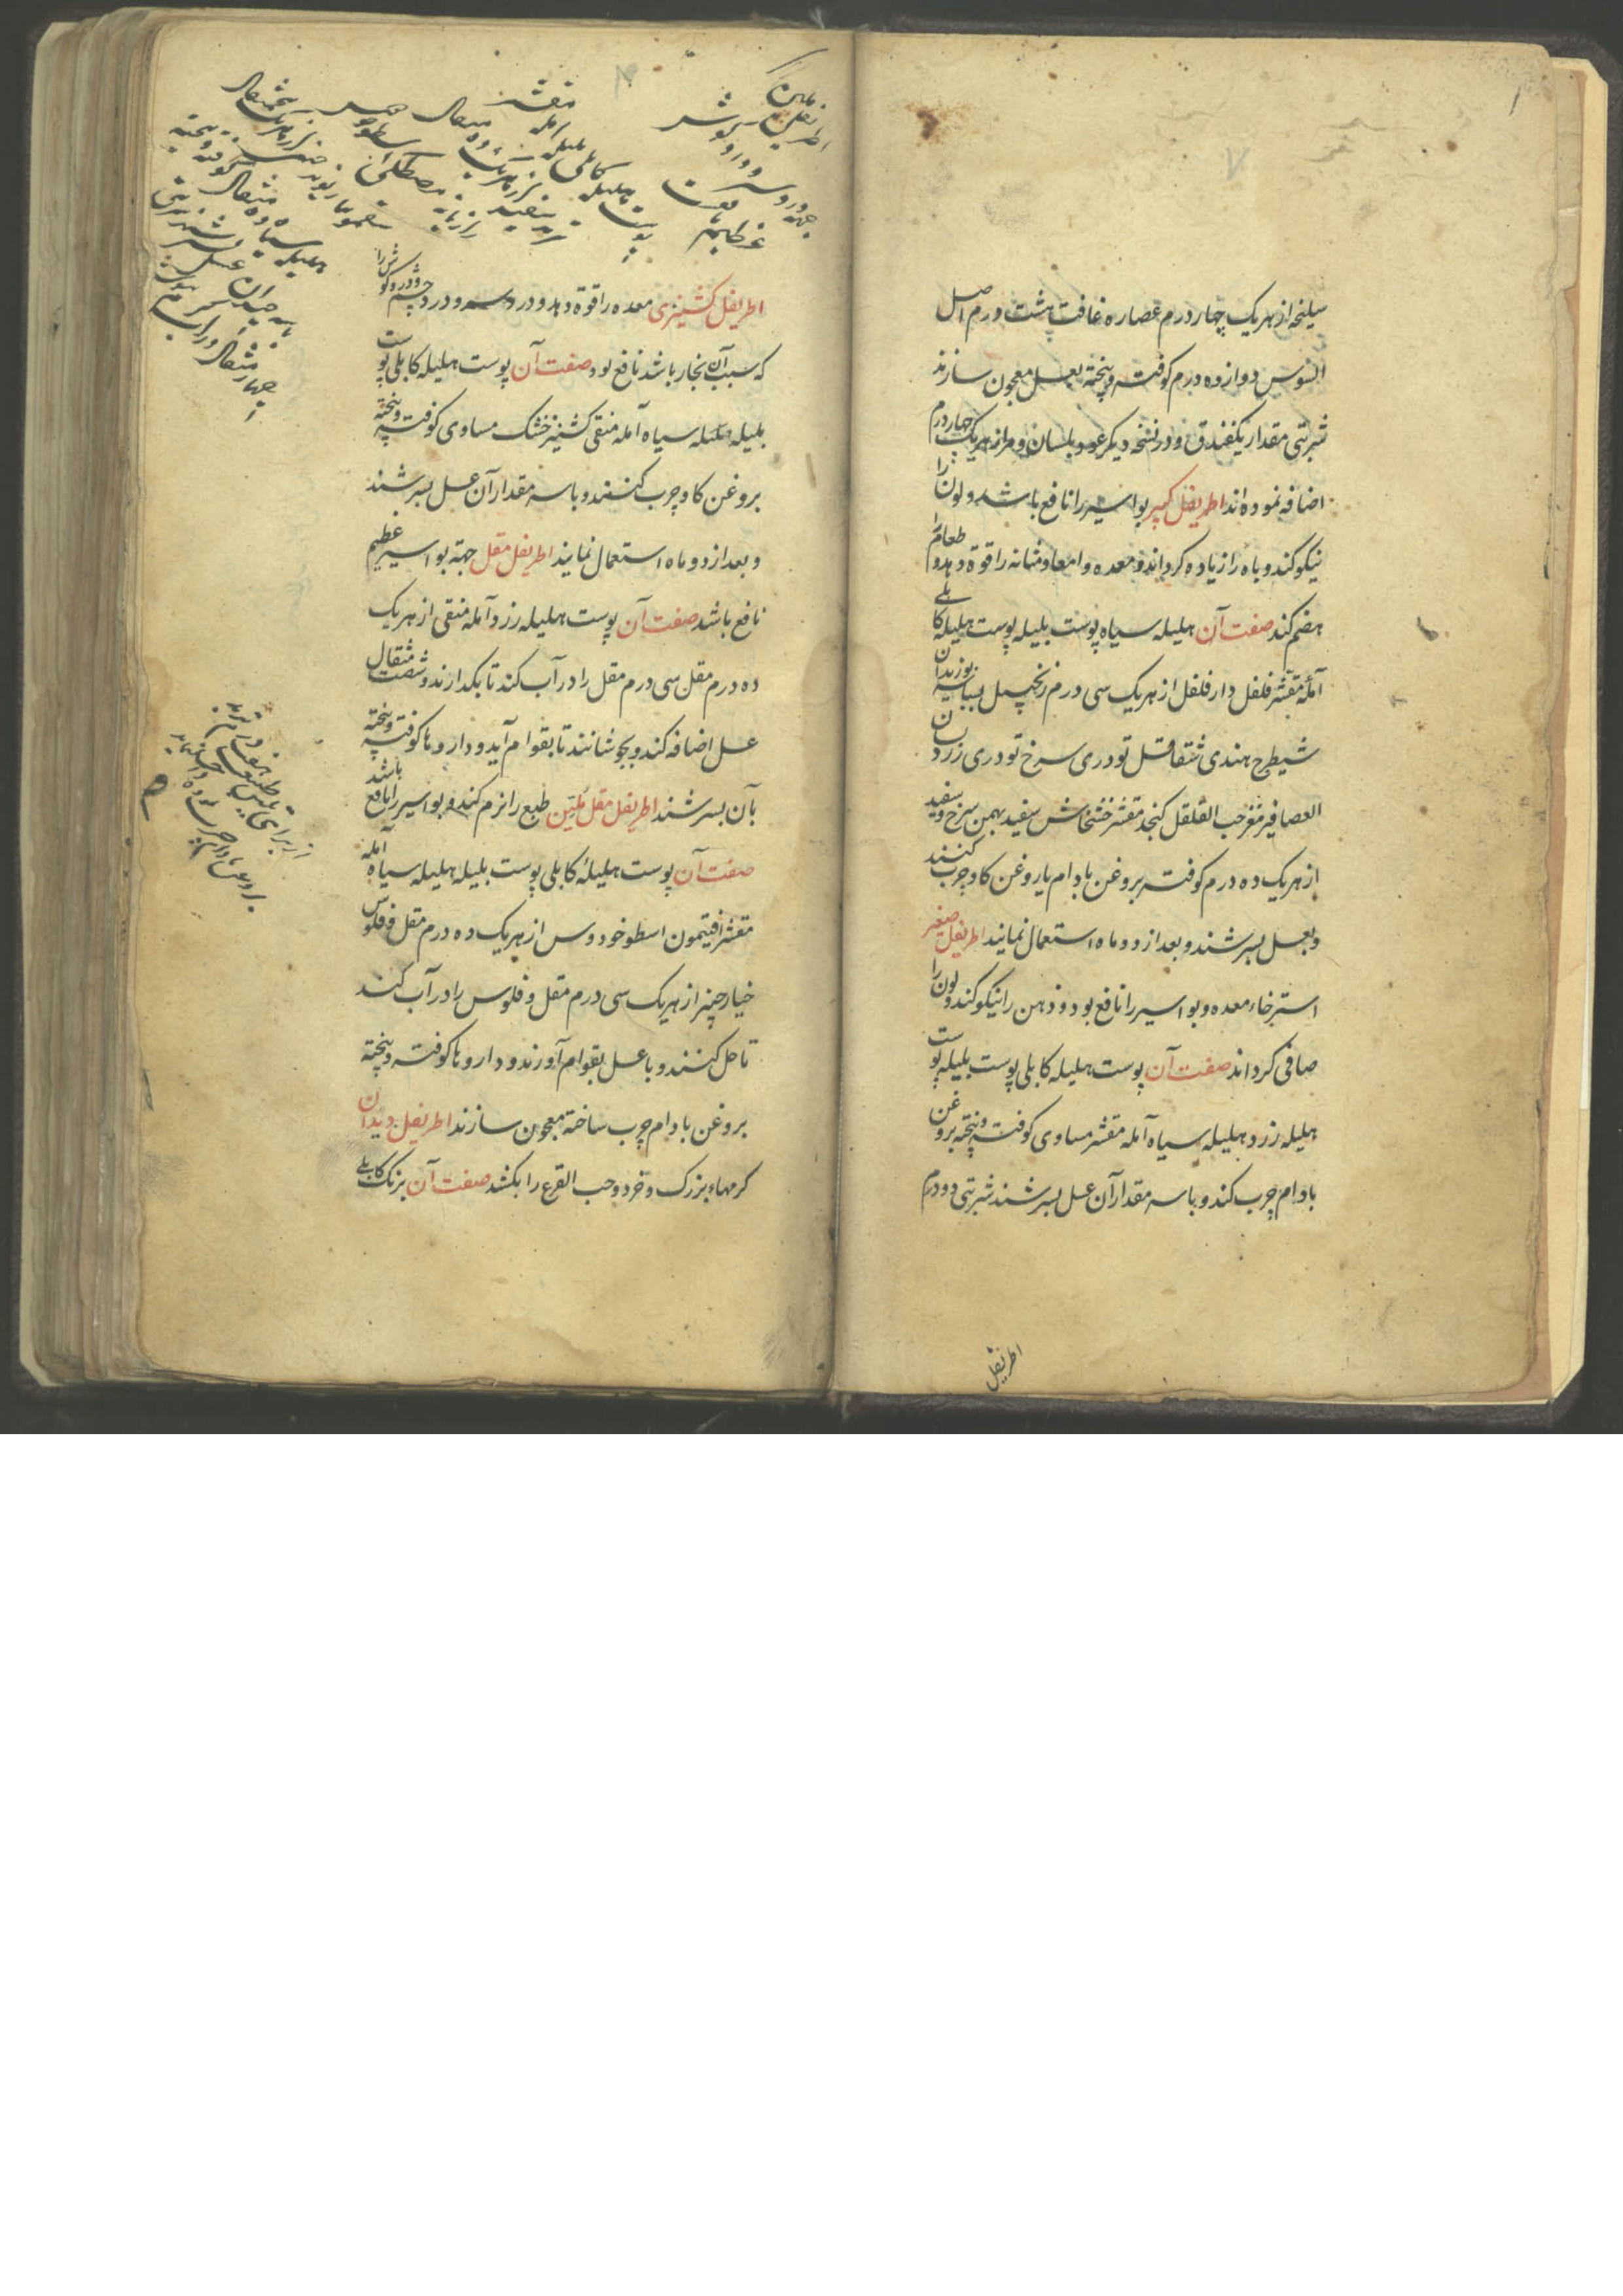 سلیخه از هر یک چهار درم عصاره غافت هشت درم اصل
السوس دوازده درم کوفته و پخته بعسل معجون سازند
شربتی مقدار یکفندق و در نسخه دیکر عود بلسان و مر از هر یک چهار درم
اضافه نموده اند اطریفل کبیر بواسیر را نافع باشد و لون را
نیکو کند و باه را زیاده کرداند و معده و امعا و مثانه را قوة دهد و طعام را
هضم کند صفت آن هلیله سیاه پوست بلیله پوست هلیله کابلی
آملهٔ مقشر فلفل دارفلفل از هر یک سی درم زنجبیل بسباسه بوزیدان
شیطرج هندی شقاقل تودری سرخ تودری زرد لسان
العصافیر مغز حب القلقل کنجد مقشر خشخاش سفید بهمن سرخ و سفید
از هر یک ده درم کوفته بروغن بادام یا روغن کاو چرب کنند
و بعسل بسرشند و بعد از دو ماه استعمال نمایند اطریفل صغیر
استرخاء معده و بواسیر را نافع بود و ذهن را نیکو کند و لون را
صافی کرداند صفت آن پوست هلیله کابلی پوست بلیله پوست
هلیله زرد هلیله سیاه آمله مقشر مساوی کوفته و پخته بروغن
بادام چرب کند و با سه مقدار آن عسل بسرشند شربتی دو درم
اطریفل
اطریفل کشنیزی معده را قوة دهد و درد سر و درد چشم و درد کوش را
که سبب آن بخار باشد نافع بود صفت آن پوست هلیله کابلی پوست
بلیله هلیله سیاه آمله منقی کشنیز خشک مساوی کوفته و پخته
بروغن کاو چرب کنند و با سه مقدار آن عسل بسرشند
و بعد از دو ماه استعمال نمایند اطریفل مقل جهة بواسیر عظیم
نافع باشد صفت آن پوست هلیله زرد و آمله منقی از هر یک
ده درم مقل سی درم مقل را در آب کند تا بکدازند و شصت مثقال
عسل اضافه کند و بجوشانند تا بقوام آید و داروها کوفته و پخته
بآن بسرشند اطریفل مقل ملین طبع را نرم کند و بواسیر را نافع باشد
صفت آن پوست هلیلهٔ کابلی پوست بلیله هلیله سیاه آمله
مقشر افتیمون اسطوخودوس از هر یک ده درم مقل و فلوس
خیارچنبر از هر یک سی درم مقل و فلوس را در آب کند
تا حل کنند و با عسل بقوام آورند و داروها کوفته و پخته
بروغن بادام چرب ساخته معجون سازند اطریفل دیدان
کرمهاء بزرک و خرد و حب القرع را بکشد صفت آن برنک کابلی